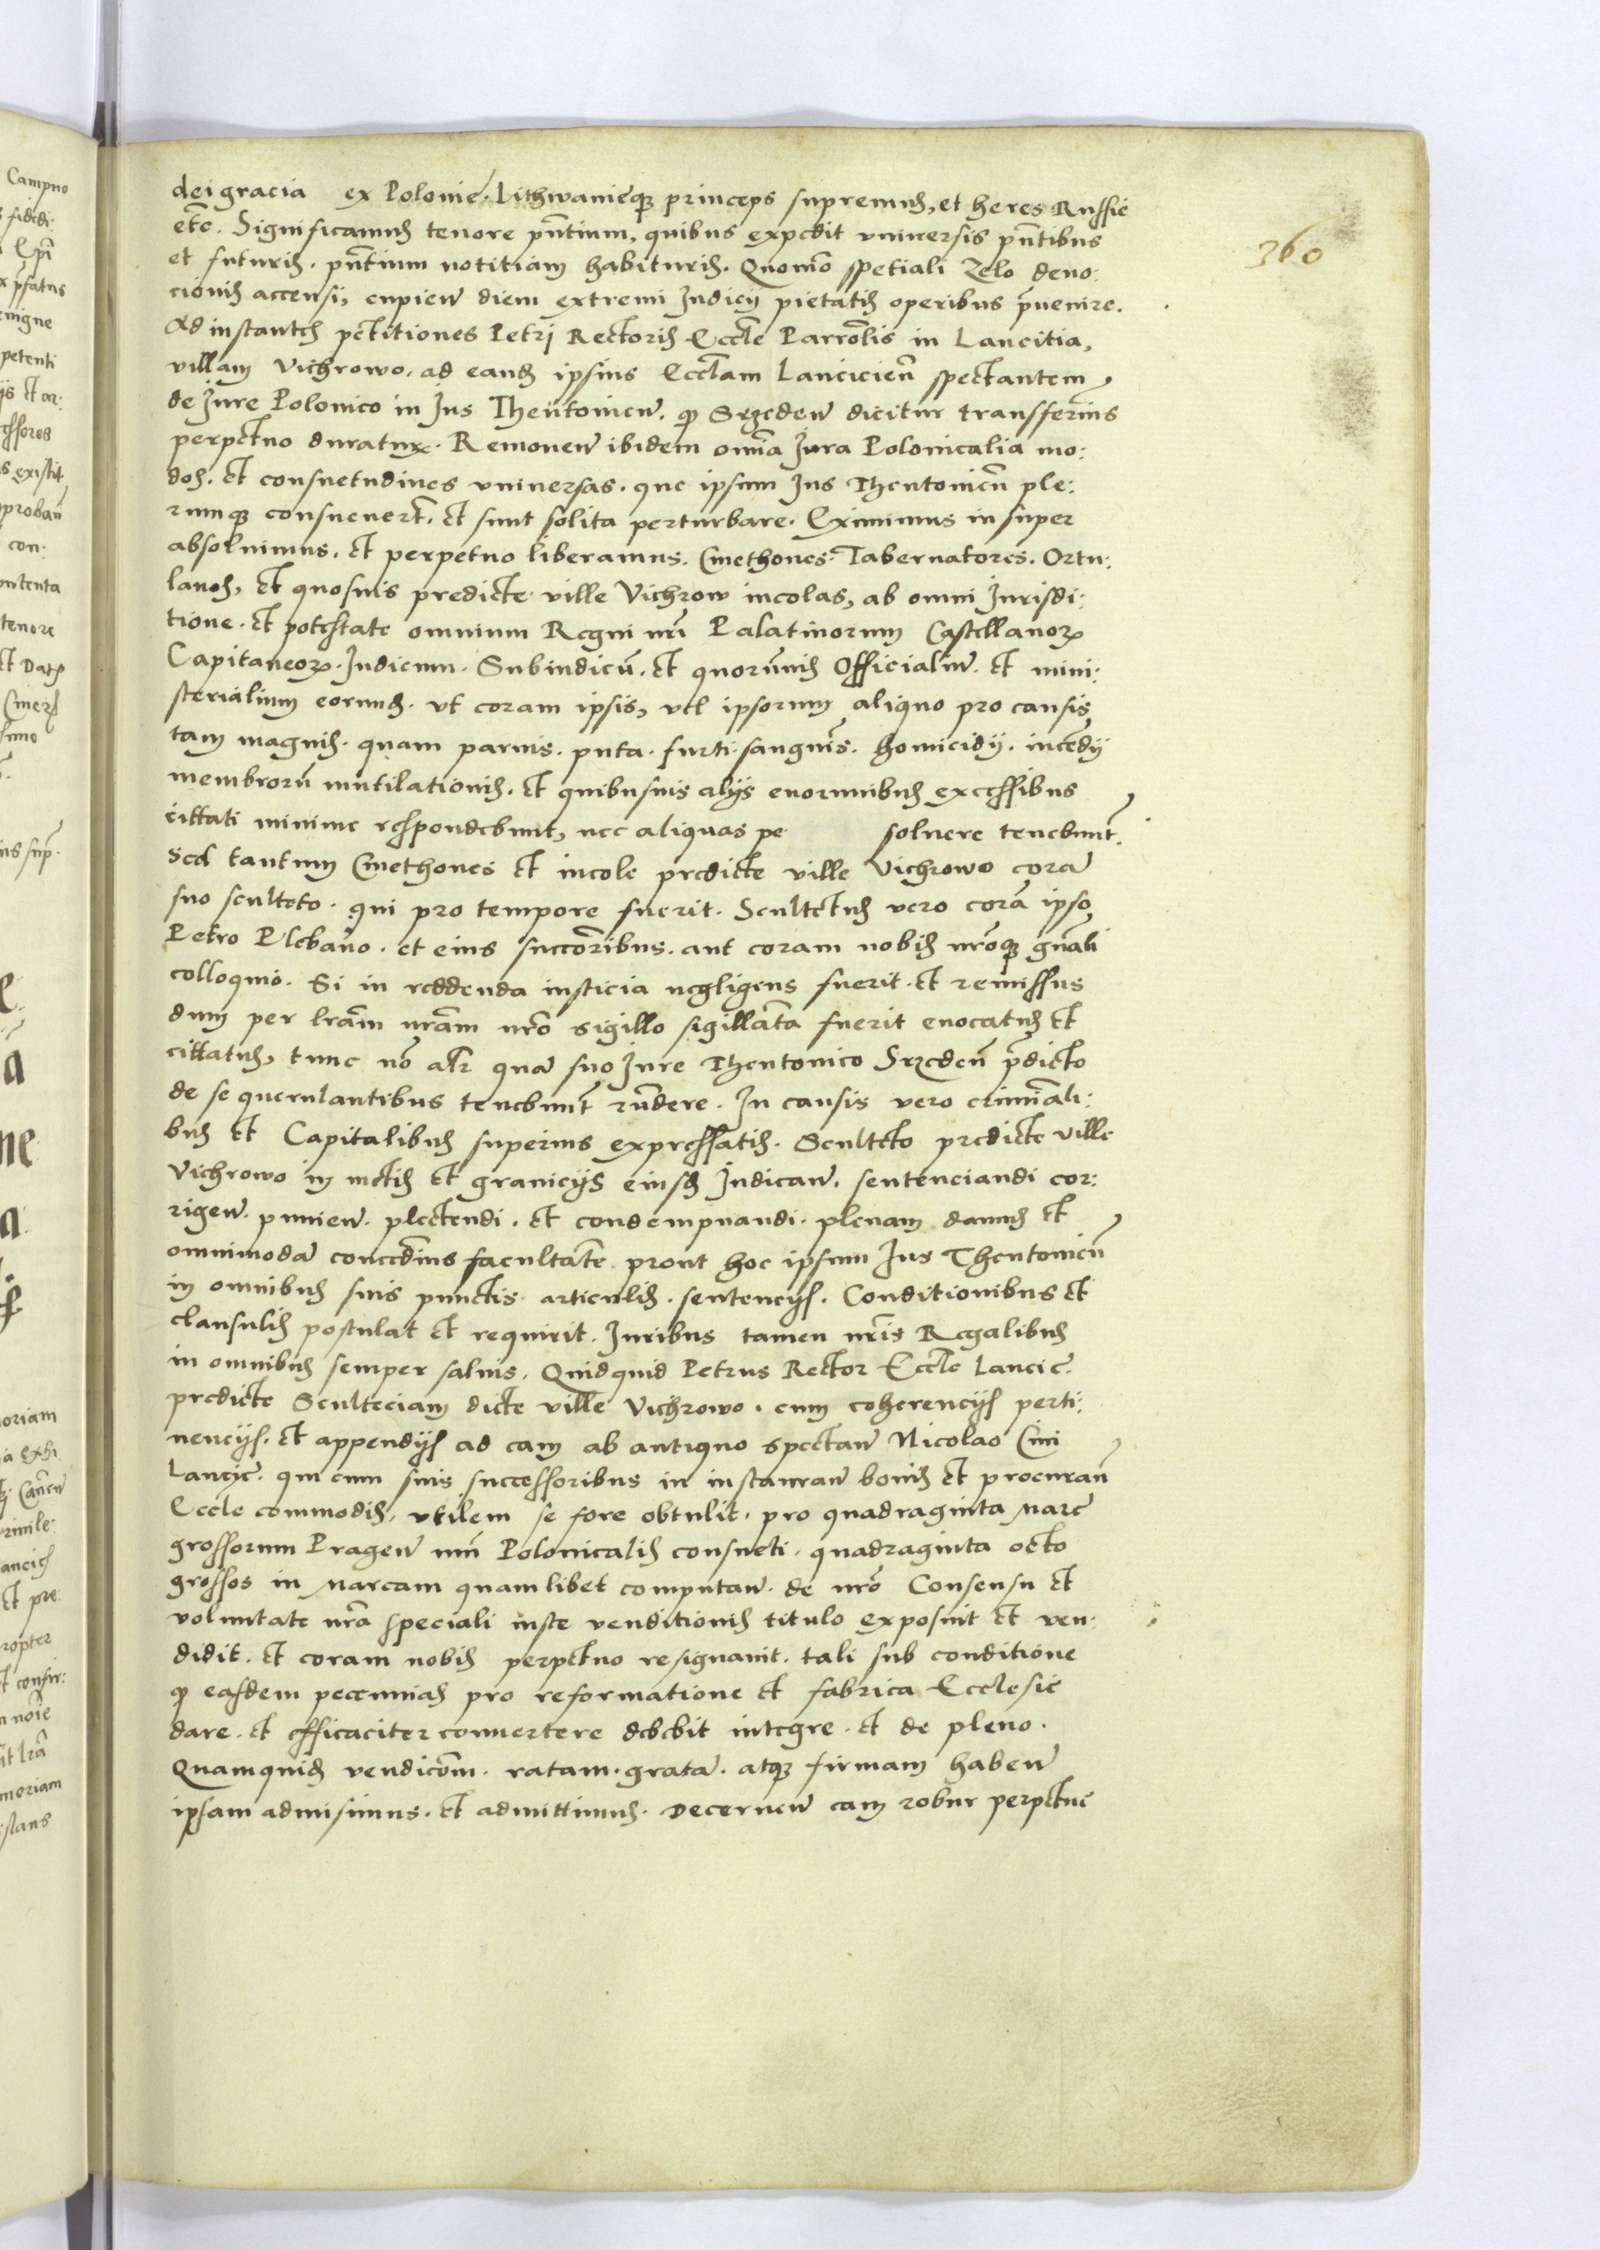 360
dei gracia ex Polonie. Lithwanieqз princeps supremus, et heres Russie
etc̃. Significamus tenore pñtium, quibus expedit vniuersis pñtibus
et futuris. pñtium notitiam habituris. Quomo spetiali Zelo deuo:
cionis accensi, cupien̄ diem extremi Iudicij pietatis operibus p̄uenire.
Ad instantes petitiones Petrj Rectoris Eccl̃e Parrol̃is in Lancitia,
villam Vichrowo. ad eand̃ ipsius Eccl̃am Lancicieñ spectantem
de Jure Polonico in Jus Theütonicū. qꝫ Srzeden̄ dicitur transferimꝰ
perpetuo duraturꝝ. Remouen̄ ibidem omĩa Jura Polonicalia mo:
dos. et consuetudines vniuersas. que ipsum Jus Theutonicũ ple:
rumqз consueuerũt. et sunt solita perturbare. Eximimus insuper
absoluimus. et perpetuo liberamus. Cmethones. Tabernatores. Ortu:
lanos, et quosuis predicte ville Vichrow incolas, ab omni Jurisdi:
tione. et potestate omnium Regni nr̃i Palatinorum Castellanoꝝ
Capitaneoꝝ. Iudicum. Subiudicũ. et quorũuis Officialiũ. et mini:
sterialium eorumd̃. vt coram ipsis, vel ipsorum aliquo pro causis
tam magnis. quam paruis. puta. furti. sanguĩs. homicidij. incẽdij
membrorũ mutilationis. et quibusuis alijs enormibus excessibus
cittati minime respondebunt, nec aliquas pe soluere tenebunt̃.
Sed tantum Cmethones et incole predicte ville Vichrowo corã
suo sculteto. qui pro tempore fuerit. Scultetus vero corã ipso
Petro Plebano. et eius succoribus. aut coram nobis nr̃oqз gñali
colloquio. Si in reddenda iusticia negligens fuerit. et remissus
dum per lr̃am nr̃am nr̃o sigillo sigillata fuerit euocatus et
cittatus, tunc nõ alr̃ quã suo Jure Theutonico Srzedeñ p̄dicto
de se querulantibus tenebunt̃ rñdere. In causis vero criminali:
bus et Capitalibus superius expressatis. Sculteto predicte ville
Vichrowo in metis et granicijs eiusd̃ Iudican̄. sentenciandi cor:
rigen̄. punien̄. plectendi. et condempnandi. plenam damus et
omnimodã concedimꝰ facultatẽ prout hoc ipsum Jus Theutonicũ
in omnibus suis punctis. articulis. sentencijs. Conditionibus et
clausulis postulat et requirit. Juribus tamen nr̃is Regalibus
in omnibus semper saluis. Quidquid Petrus Rector Eccl̃e Lancic̃.
predicte Sculteciam dicte ville Vichrowo. cum coherencijs perti:
nencijs. et appendijs ad eam ab antiquo spectan̄ Nicolao Ciui
Lancic̃. qui cum suis successoribus in instauran̄ bonis et procurañ
Eccl̃e commodis, vtilem se fore obtulit. pro quadraginta Marc̃
grossorum Pragen̄ nũi Polonicalis consueti. quadraginta octo
grossos in Marcam quamlibet computan̄. de nr̃o Consensu et
voluntate nr̃a speciali iuste venditionis titulo exposuit et ven:
didit. et coram nobis perpetuo resignauit. tali sub conditione
qꝫ easdem pecunias pro reformatione et fabrica Ecclesie
dare. et efficaciter conuertere debebit integre. et de pleno.
Quamquid̃ vendicõm. ratam. gratã. atqз firmam haben̄
ipsam admisimus. et admittimus. Decernen̄ eam robur perpetue